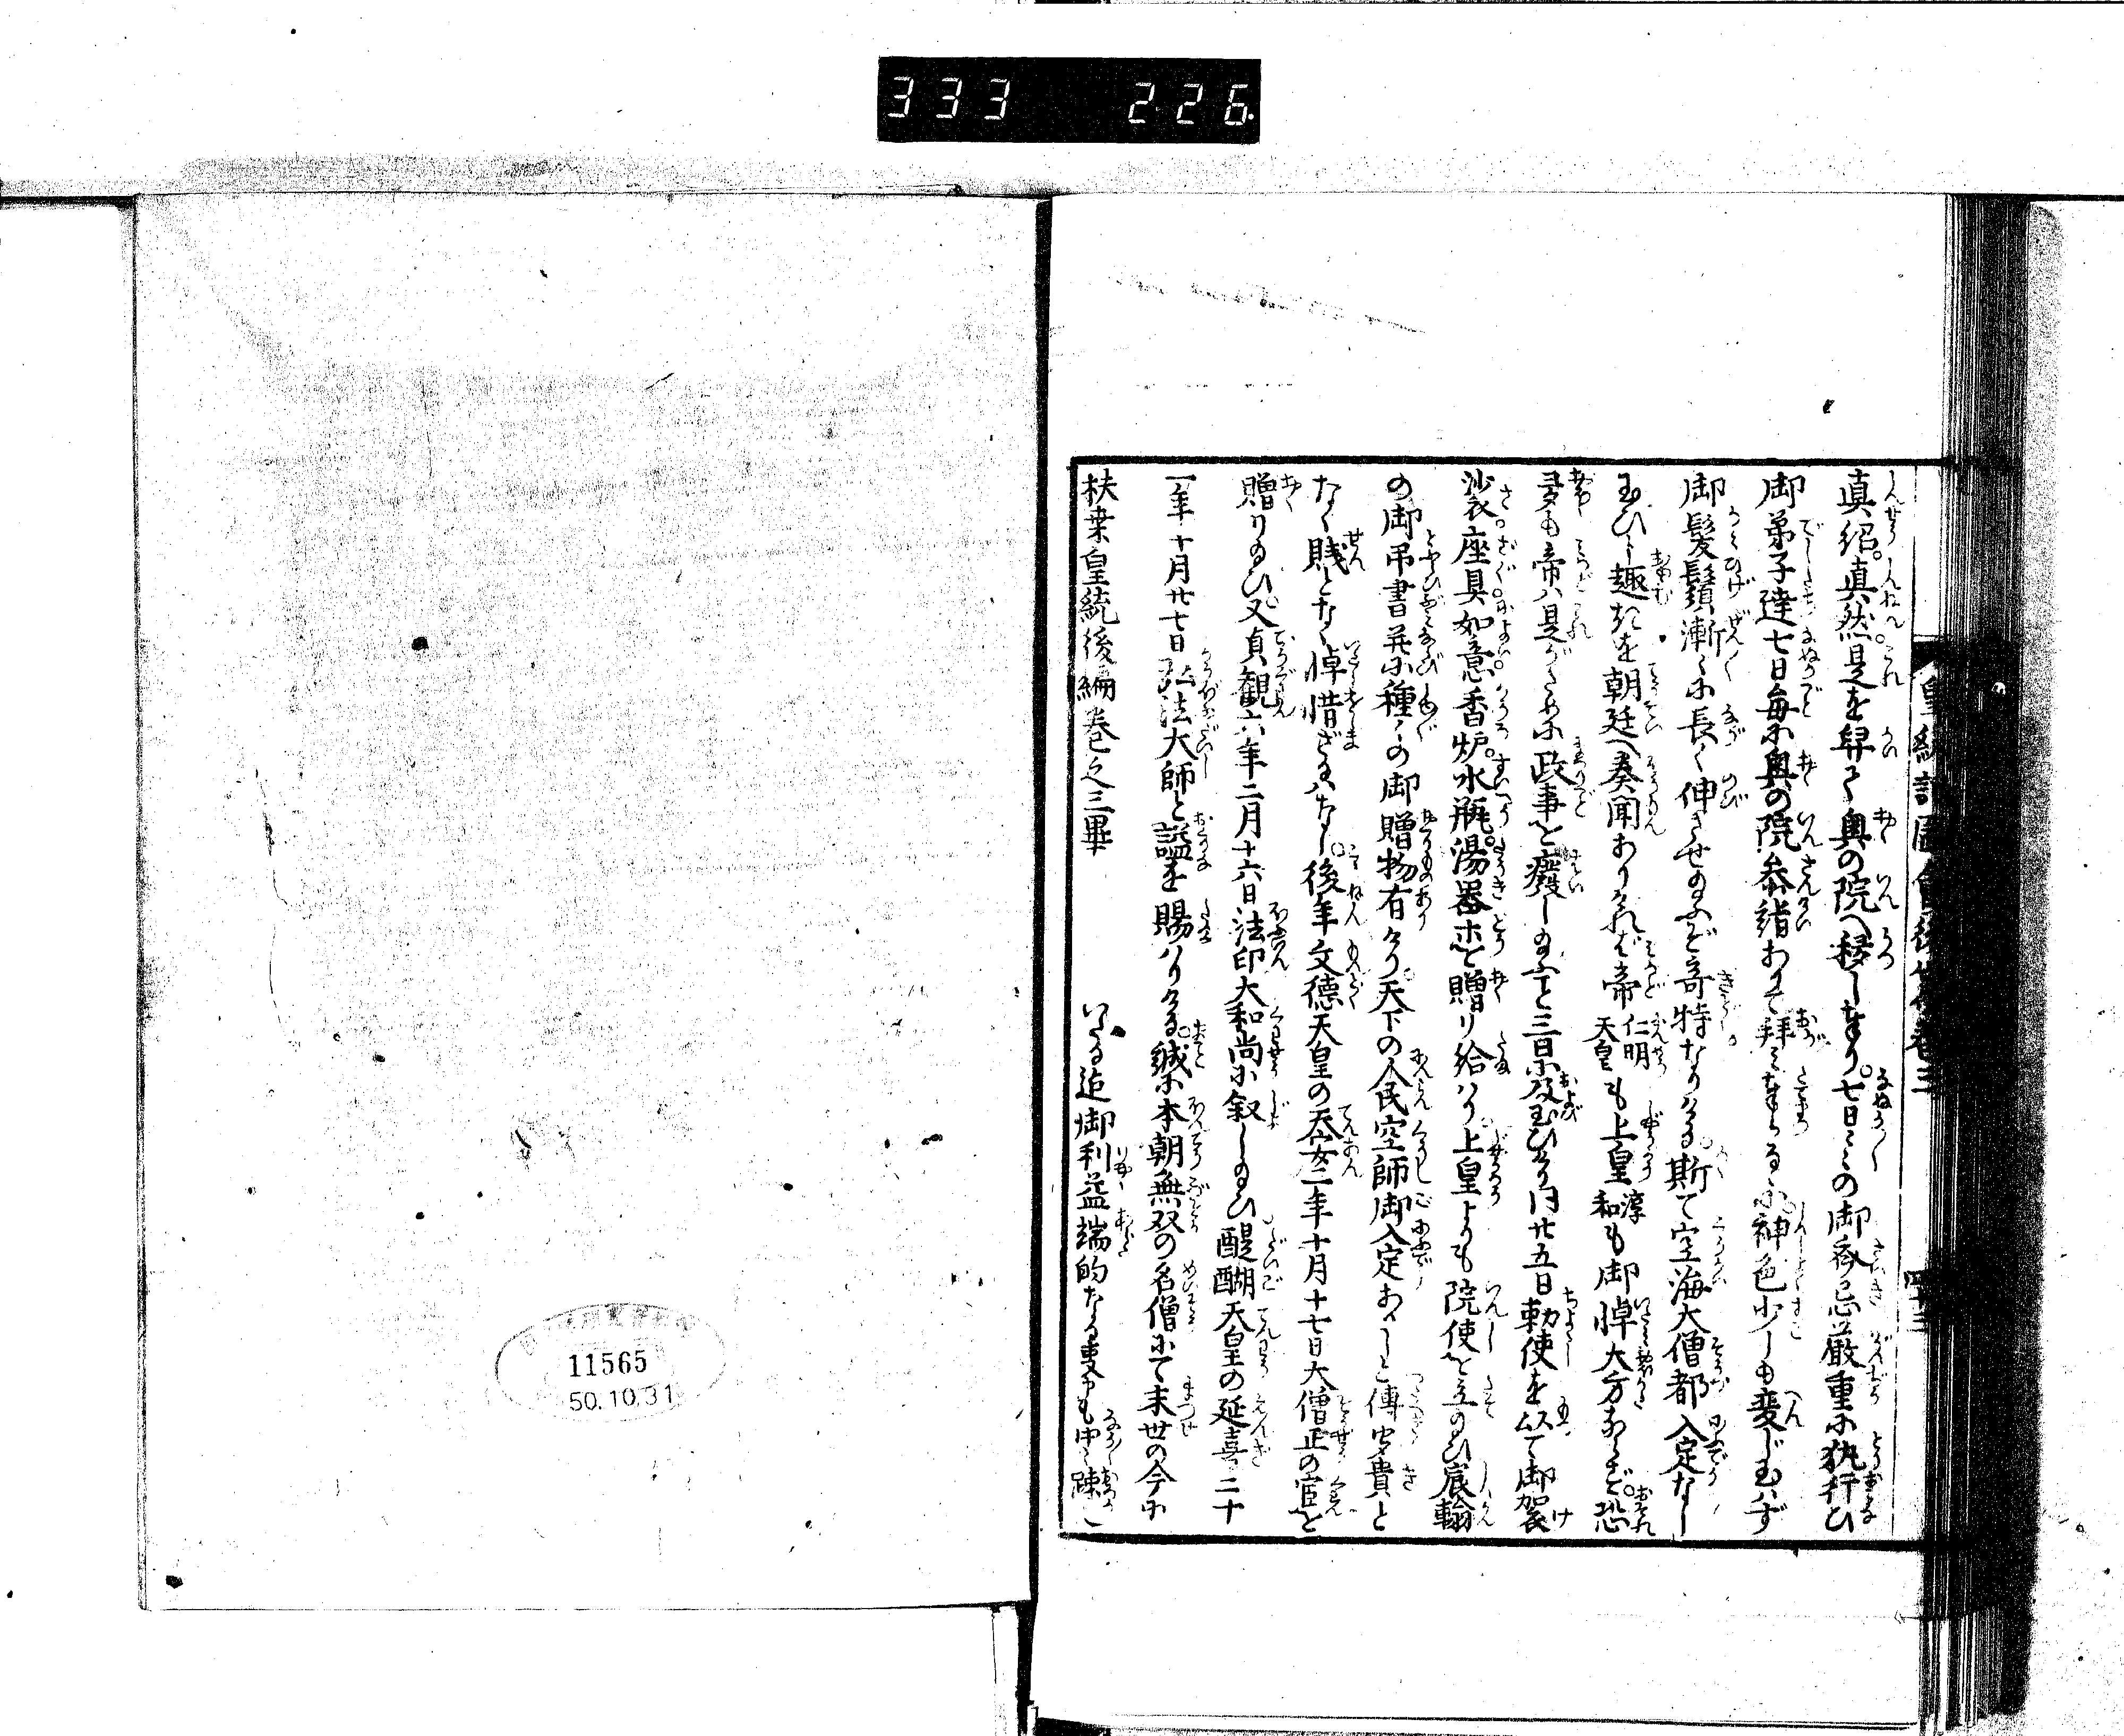 333 226
皇統記圖會後篇巻三
真紹。真然是を舁て奥の院へ移し奉り。七日〻の御斎忌厳重に執行ひ
御弟子達七日毎に奥の院参詣ありて拝み奉らるゝに神色少しも変じ玉はず
御髪鬚漸〻に長く伸させ給ふぞ奇特なりける。斯て空海大僧都入定なし
玉ひし趣きを朝廷へ奏聞ありければ帝仁明天皇も上皇淳和も御悼大方ならず。恐
多も帝ハ是がために政事を癈し給ふこと三日に及玉ひける同廿五日勅使を以て御袈
裟。座具。如意。香炉。水瓶。湯器等を贈り給ハり。上皇よりも院使を立給ひ宸翰
の御吊書并に種〻の御贈物有けり。天下の人民空師御入定ありしと傳聞貴と
なく賎となく悼惜ざるハなし。後年文徳天皇の天安二年十月十七日大僧正の官を
贈り給ひ。又貞観六年二月十六日法印大和尚に叙し給ひ醍醐天皇の延喜二十
一年十月廿七日弘法大師と謚を賜ハりける。誠に本朝無双の名僧にて末世の今に
いたる迄御利益端的なる事も中〻疎
扶桒皇統後編巻之三畢
11565
50.10.31